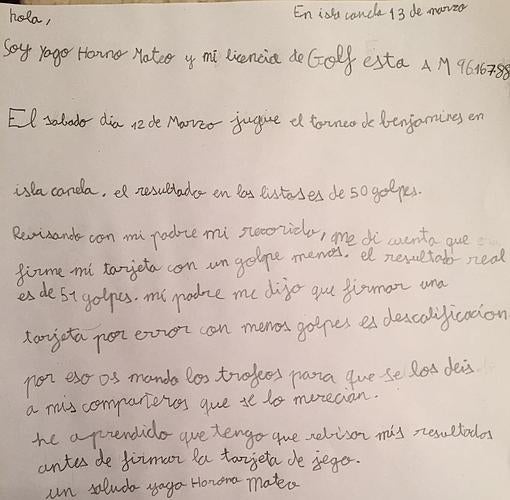 hola,
En isla canela 13 de marzo
Soy Yago Horno Mateo y mi licencia de Golf esta AM 9616788
El sabado dia 12 de Marzo jugue el torneo de benjamines en
isla canela. el resultado en las listas es de 50 golpes.
Revisando con mi padre mi recorrido, me di cuenta que
firme mi tarjeta con un golpe menos. el resultado real
es de 51 golpes. mi padre me dijo que firmar una
tarjeta por error con menos golpes es descalificacion
por eso os mando los trofeos para que se los deis
a mis compañeros que se lo merecian.
he aprendido que tengo que rebisar mis resultados
antes de firmar la tarjeta de jego.
un saludo yago Horona Mateo